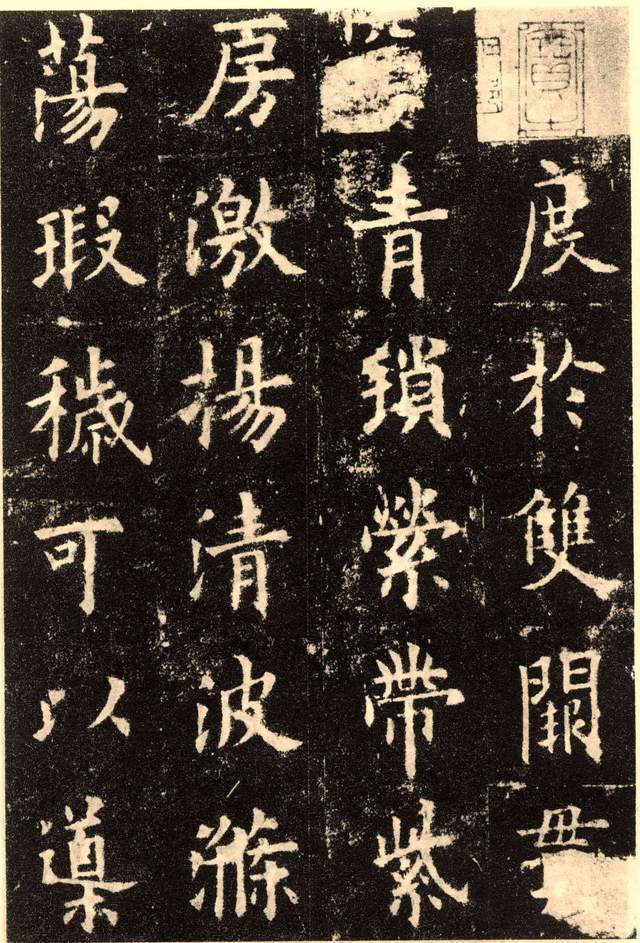 度於雙闕
青瑣縈帶紫
房激揚清波滌
蕩瑕穢可以導